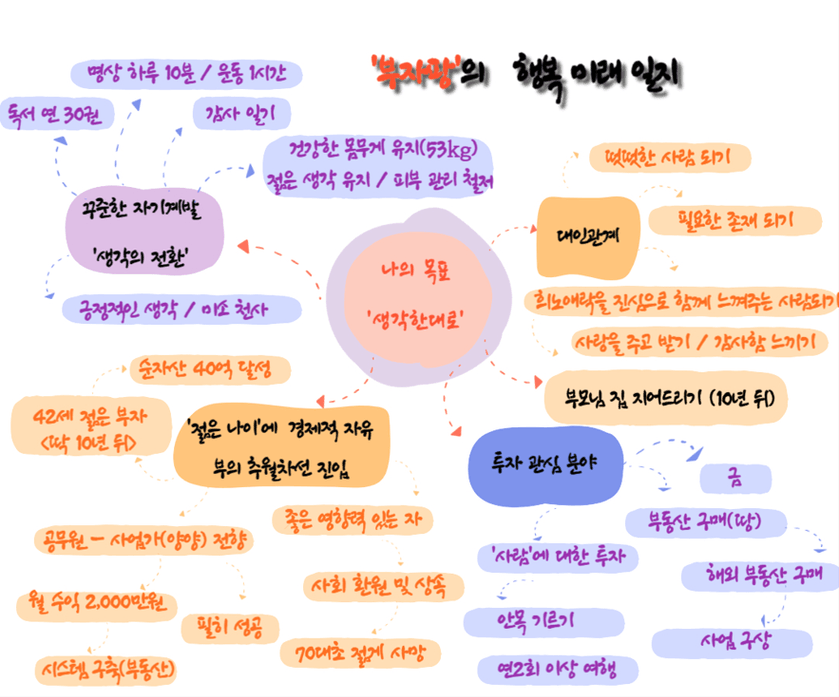 '부자팡'의 행복 미래 일지
명상 하루 10분 / 운동 1시간
독서 연 30권
감사 일기
건강한 몸무게 유지(53kg)
젊은 생각 유지 / 피부 관리 철저
꾸준한 자기계발
'생각의 전환'
긍정적인 생각 / 미소 천사
나의 목표
'생각한대로'
떳떳한 사람 되기
대인관계
필요한 존재 되기
희노애락을 진심으로 함께 느껴주는 사람되기
사랑을 주고 받기 / 감사함 느끼기
부모님 집 지어드리기 (10년 뒤)
순자산 40억 달성
42세 젊은 부자
<딱 10년 뒤>
'젊은 나이'에 경제적 자유
부의 추월차선 진입
공무원 - 사업가(양양) 전향
월 수익 2,000만원
필히 성공
시스템 구축(부동산)
좋은 영향력 있는 자
사회 환원 및 상속
70대초 젊게 사망
투자 관심 분야
금
부동산 구매(땅)
해외 부동산 구매
사업 구상
'사람'에 대한 투자
안목 기르기
연2회 이상 여행